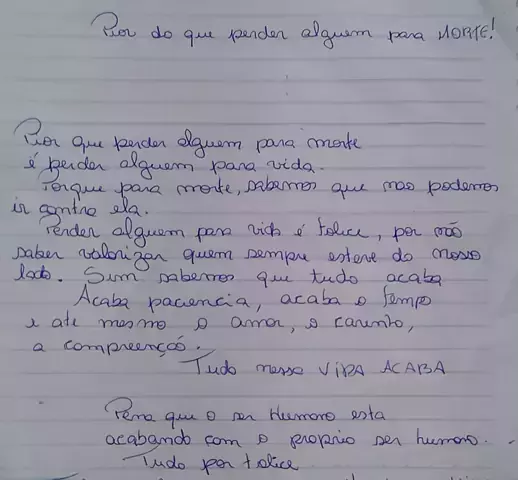 Pior do que perder alguem para MORTE!
Pior que perder alguem para morte
é perder alguem para vida.
Porque para morte, sabemos que mao podemos
ir contra ela.
Perder alguem para vida é tolice, por não
saber valorizar quem sempre esteve do nosso
lado. Sim sabemos que tudo acaba
Acaba paciencia, acaba o tempo
e ate mesmo o amor, o carinho,
a compreençaõ.
Tudo nessa VIDA ACABA
Pena que o ser Humano esta
acabando com o proprio ser humano.
Tudo por tolice